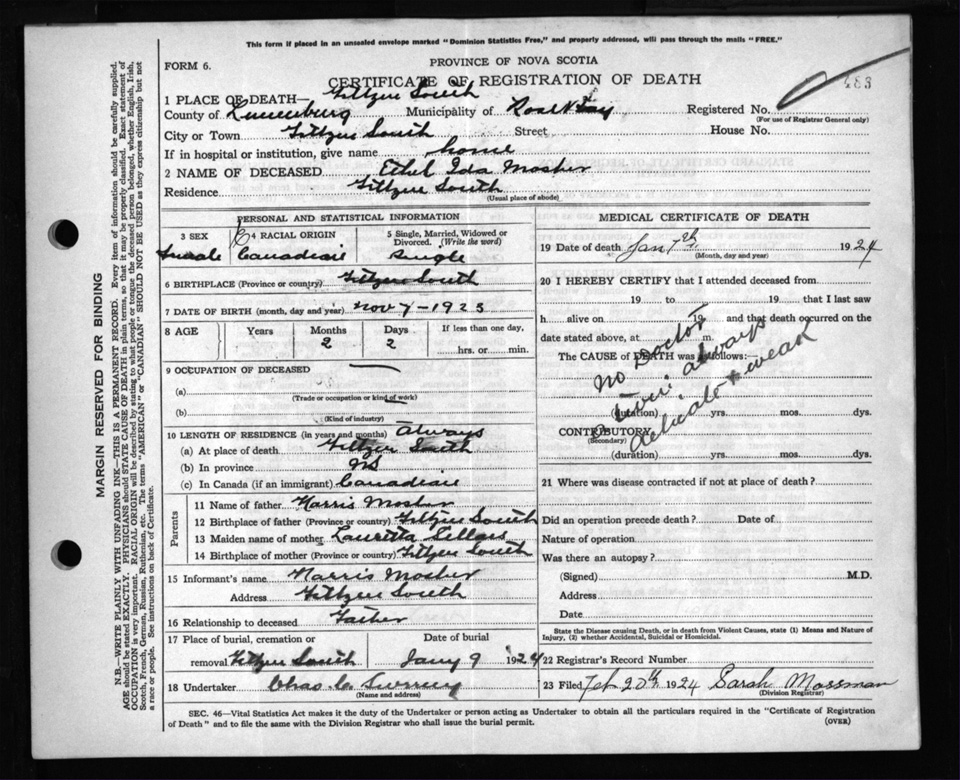 This form if placed in an unsealed envelope marked "Dominion Statistics Free," and properly addressed, will pass through the mails "FREE."
FORM 6.
PROVINCE OF NOVA SCOTIA
CERTIFICATE OF REGISTRATION OF DEATH
483
1 PLACE OF DEATH— South
County of Lunenburg Municipality of Rose Bay Registered No.
(For use of Registrar General only)
City or Town South Street House No.
If in hospital or institution, give name home
2 NAME OF DECEASED Ethel Ida Mosher
Residence South
(Usual place of abode)
PERSONAL AND STATISTICAL INFORMATION
3 SEX 4 RACIAL ORIGIN 5 Single, Married, Widowed or Divorced. (Write the word)
Female Canadian Single
6 BIRTHPLACE (Province or country) South
7 DATE OF BIRTH (month, day and year) Nov 7-1923
8 AGE Years Months Days If less than one day,
2 2 hrs. or min.
9 OCCUPATION OF DECEASED
(a)
(Trade or occupation or kind of work)
(b)
(Kind of industry)
10 LENGTH OF RESIDENCE (in years and months) Always
(a) At place of death South
(b) In province NS
(c) In Canada (if an immigrant) Canadian
Parents
11 Name of father Harris Mosher
12 Birthplace of father (Province or country) South
13 Maiden name of mother Lauretta
14 Birthplace of mother (Province or country) South
15 Informant's name Harris Mosher
Address South
16 Relationship to deceased Father
17 Place of burial, cremation or Date of burial
removal South Jany 9 1924
18 Undertaker Chas. C.
(Name and address)
MEDICAL CERTIFICATE OF DEATH
19 Date of death Jan 7th 1924
(Month, day and year)
20 I HEREBY CERTIFY that I attended deceased from
19 to 19 that I last saw
h alive on 19 and that death occurred on the
date stated above, at m.
The CAUSE of DEATH was as follows:—
No Doctor
always
delicate + weak
(duration) yrs. mos. dys.
CONTRIBUTORY
(Secondary)
(duration) yrs. mos. dys.
21 Where was disease contracted if not at place of death?
Did an operation precede death? Date of
Nature of operation
Was there an autopsy?
(Signed) M.D.
Address
Date
State the Disease causing Death, or in death from Violent Causes, state (1) Means and Nature of
Injury, (2) whether Accidental, Suicidal or Homicidal.
22 Registrar's Record Number
23 Filed Feb 20th 1924 Sarah Mossman
(Division Registrar)
SEC. 46—Vital Statistics Act makes it the duty of the Undertaker or person acting as Undertaker to obtain all the particulars required in the "Certificate of Registration
of Death" and to file the same with the Division Registrar who shall issue the burial permit.
(OVER)
MARGIN RESERVED FOR BINDING
N.B.—WRITE PLAINLY WITH UNFADING INK—THIS IS A PERMANENT RECORD. Every item of information should be carefully supplied.
AGE should be stated EXACTLY. PHYSICIANS should STATE CAUSE OF DEATH in plain terms, so that it may be properly classified. Exact statement of
OCCUPATION is very important. RACIAL ORIGIN will be described by stating to what people or tongue the deceased person belonged, whether English, Irish,
Scotch, French, German, Russian, Ruthenian, etc. The terms "AMERICAN" or "CANADIAN" SHOULD NOT BE USED as they express citizenship but not
a race or people. See instructions on back of Certificate.